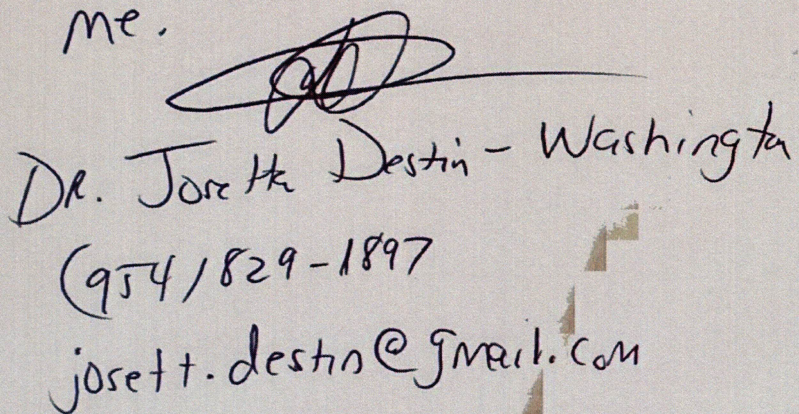 me.
DR. Josetta Destin - Washington
(954) 829-1897
josett.destin@gmail.com